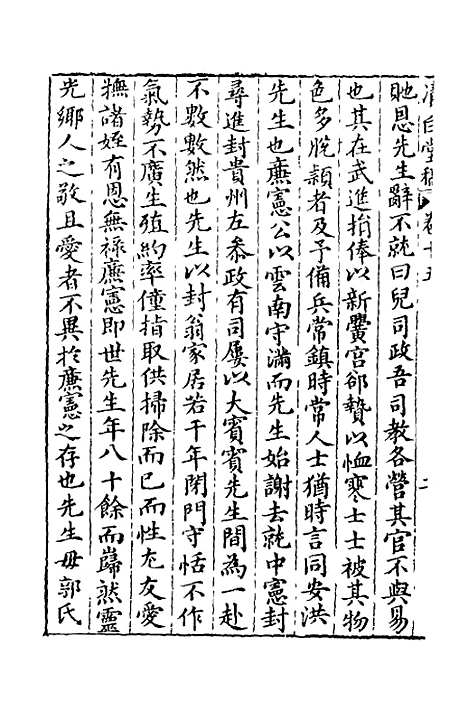 清白堂稿 卷十五
貤恩先生辭不就曰兒司政吾司教各營其官不與易
也其在武進捐俸以新黌宮郤贄以恤寒士士被其物
色多脫穎者及予備兵常鎮時常人士猶時言同安洪
先生也廉憲公以雲南守滿而先生始謝去就中憲封
尋進封貴州左參政有司屢以大賓賓先生間為一赴
不數數然也先生以封翁家居若干年閉門守恬不作
氣勢不廣生殖約率僮指取供掃除而已而性尤友愛
撫諸姪有恩無祿廉憲即世先生年八十餘而巋然靈
光鄉人之敬且愛者不異於廉憲之存也先生母郭氏